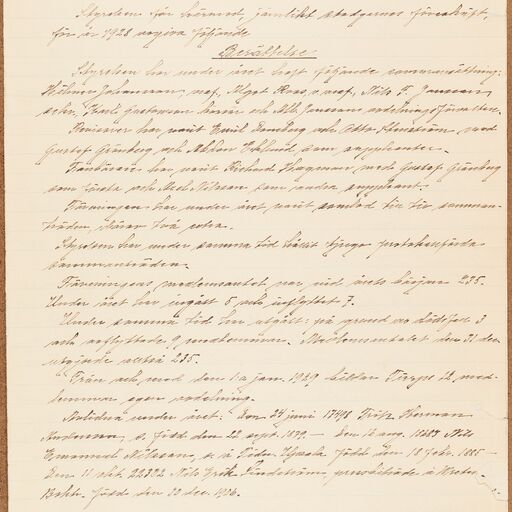 Styrelsen får härmed, jämlikt stadgarnas föreskrift,
för år 1928 avgiva följande
Berättelse:
Styrelsen har under året haft följande sammansättning:
Hilmer Johannson, ordf., Algot Roos, v. ordf., Nils F. Jonsson
sekr., Karl Gustavsson kassör och Alb. Jansson
Revisorer har varit Emil och Otto med
Gustaf Grönberg och Eklund som suppleanter.
Fanbärare har varit Richard Hagman med Gustaf Grönberg
som första och Axel Nilsson som andra suppleant.
Föreningen har under året varit samlad till tio samman-
träden, därav två extra.
Styrelsen har under samma tid hållit tjugo protokollförda
sammanträden.
Föreningens medlemsantal var vid årets början 235.
Under året har ingått 5 och inflyttat 7.
Under samma tid har utgått: på grund av dödsfall 3
och avflyttade 9 medlemmar. Medlemsantalet den 31 dec.
utgjorde alltså 235.
Från och med den 1:a jan. 1929 bildar 12 med-
lemmar egen avdelning.
Avlidna under året: Den 24 juni 17498 Fritz Herman
Andersson, f. född den 22 sept. 1879. — Den 16 aug. 18683 Nils
Emanuel Nilsson, s. i Upsala född den 18 febr. 1885 —
Den 11 okt. 22322 Nils Erik Lindström, i
född den 30 dec. 1906.